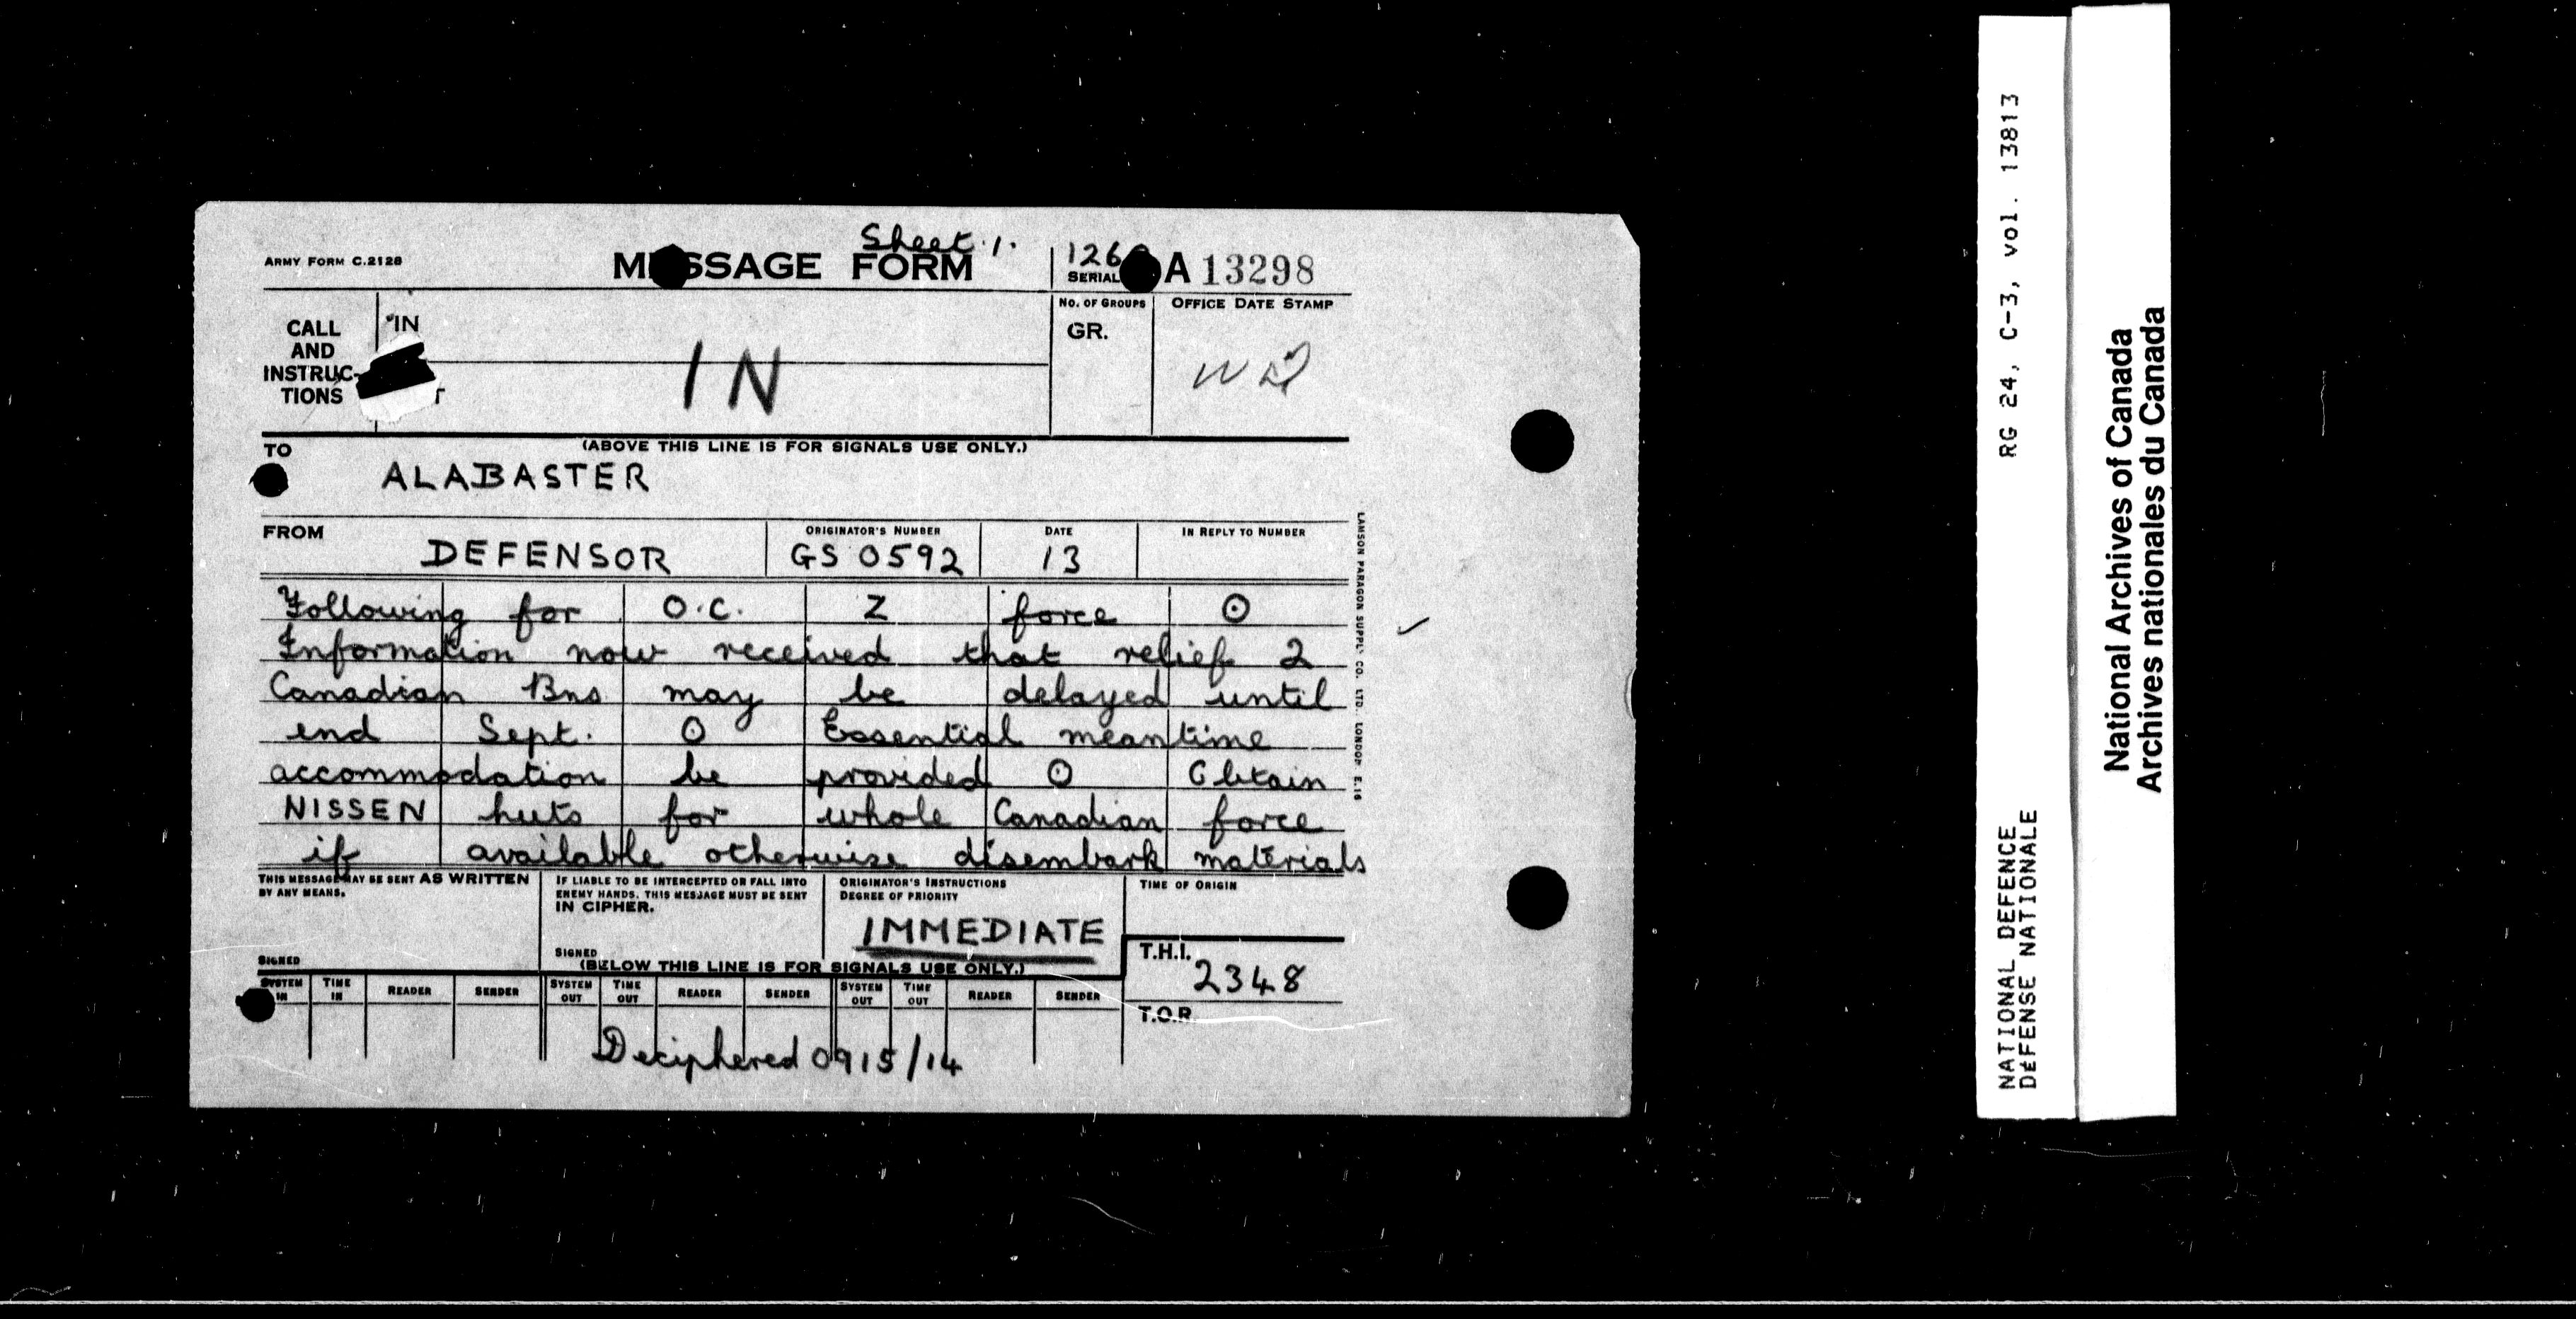 Sheet 1.
ARMY FORM C.2128
MESSAGE FORM
126
SERIAL A 13298
CALL AND INSTRUC-TIONS
IN
IN
No. OF GROUPS
GR.
OFFICE DATE STAMP
(ABOVE THIS LINE IS FOR SIGNALS USE ONLY.)
TO
ALABASTER
FROM
DEFENSOR
ORIGINATOR'S NUMBER
GS 0592
DATE
13
IN REPLY TO NUMBER
Following for O.C. Z force ⊙
Information now received that relief 2
Canadian Bns may be delayed until
end Sept. ⊙ Essential meantime
accommodation be provided ⊙ Obtain
NISSEN huts for whole Canadian force
if available otherwise disembark materials
LAMSON PARAGON SUPPLY CO. LTD. LONDON. E.16
THIS MESSAGE MAY BE SENT AS WRITTEN
BY ANY MEANS.
SIGNED
IF LIABLE TO BE INTERCEPTED OR FALL INTO
ENEMY HANDS, THIS MESSAGE MUST BE SENT
IN CIPHER.
SIGNED
ORIGINATOR'S INSTRUCTIONS
DEGREE OF PRIORITY
IMMEDIATE
TIME OF ORIGIN
T.H.I.
2348
T.O.R.
(BELOW THIS LINE IS FOR SIGNALS USE ONLY.)
SYSTEM IN TIME IN READER SENDER SYSTEM OUT TIME OUT READER SENDER SYSTEM OUT TIME OUT READER SENDER
Deciphered 0915/14
RG 24, C-3, vol. 13813
NATIONAL DEFENCE
DÉFENSE NATIONALE
National Archives of Canada
Archives nationales du Canada